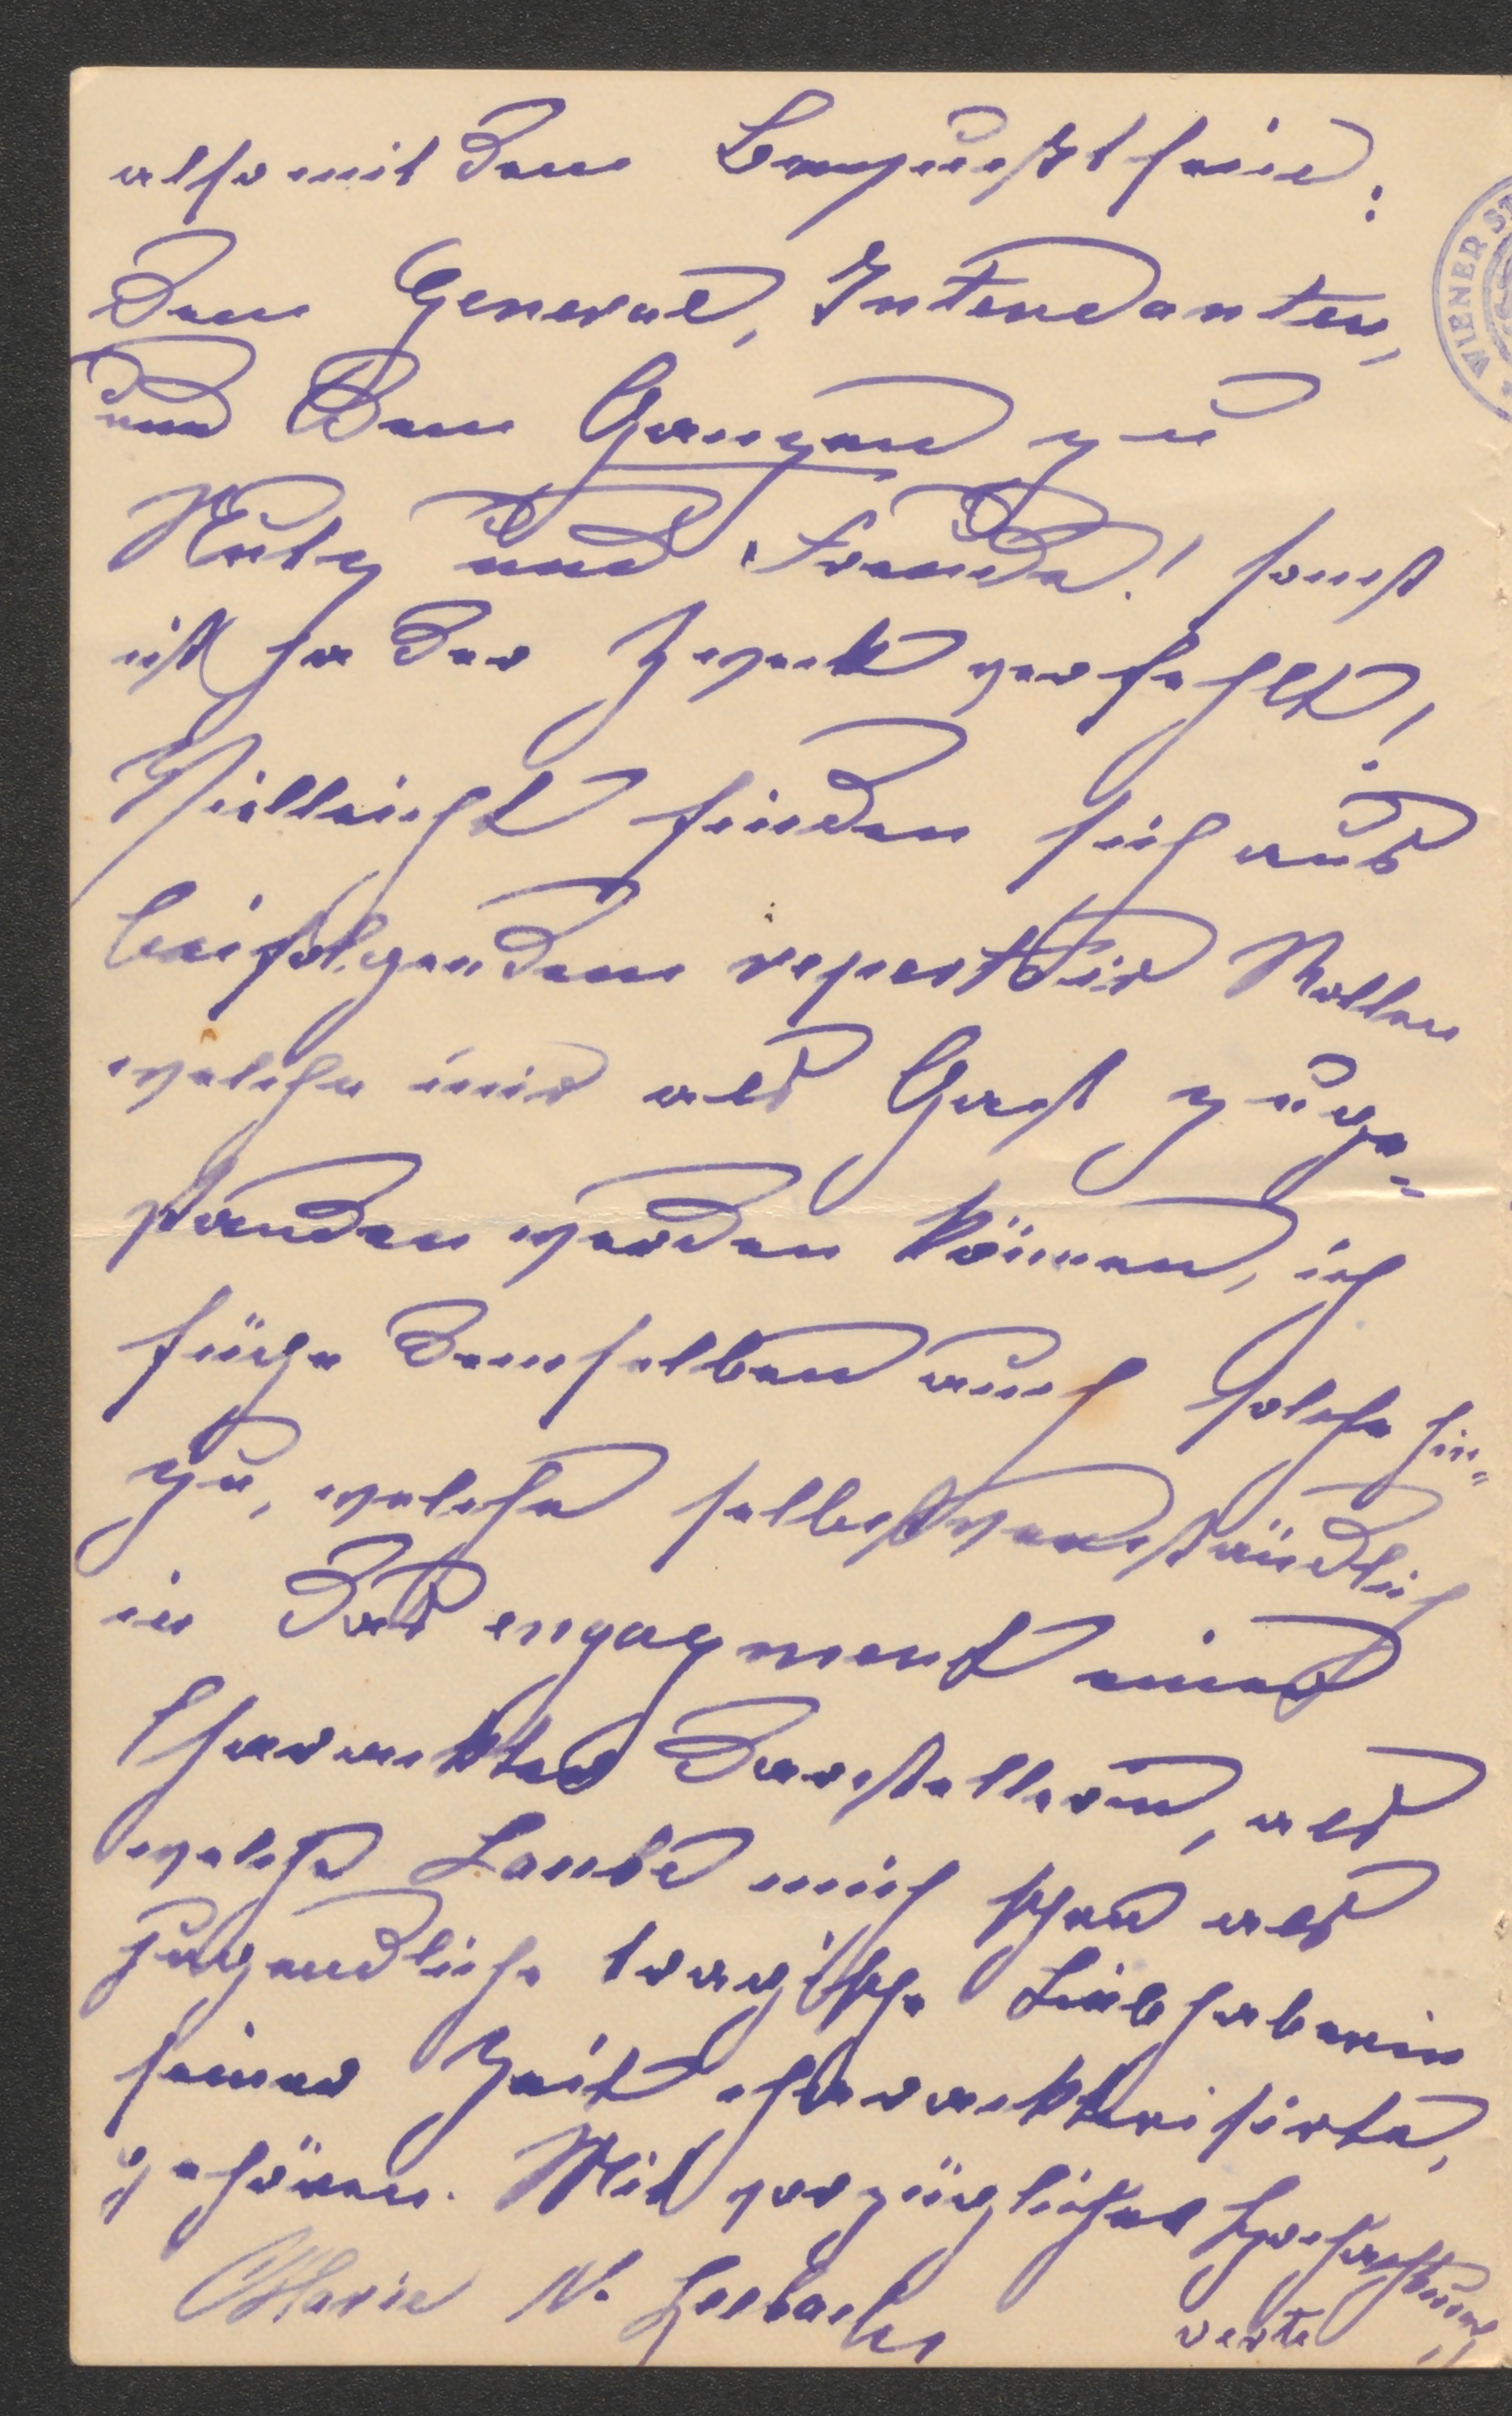 also mit dem Bewußtsein:
dem General, Intendanten,
und dem Ganzen zu
Nutz und Freude! sonst
ist ja der Zweck verfehlt!
Vielleicht finden sich aus
beifolgendem repertoir Rollen
welche mir als Gast zuge-
standen werden können, ich
füge demselben auch solche hin-
zu, welche selbstverständlich
in das engagement einer
Charakter Darstellerin, als
welche Laube mich schon als
jugendliche tragische Liebhaberin
seiner Zeit charakterisirte,
gehören. Mit vorzüglicher Hochachtung
Marie N. Seebach
verte
WIENER ST